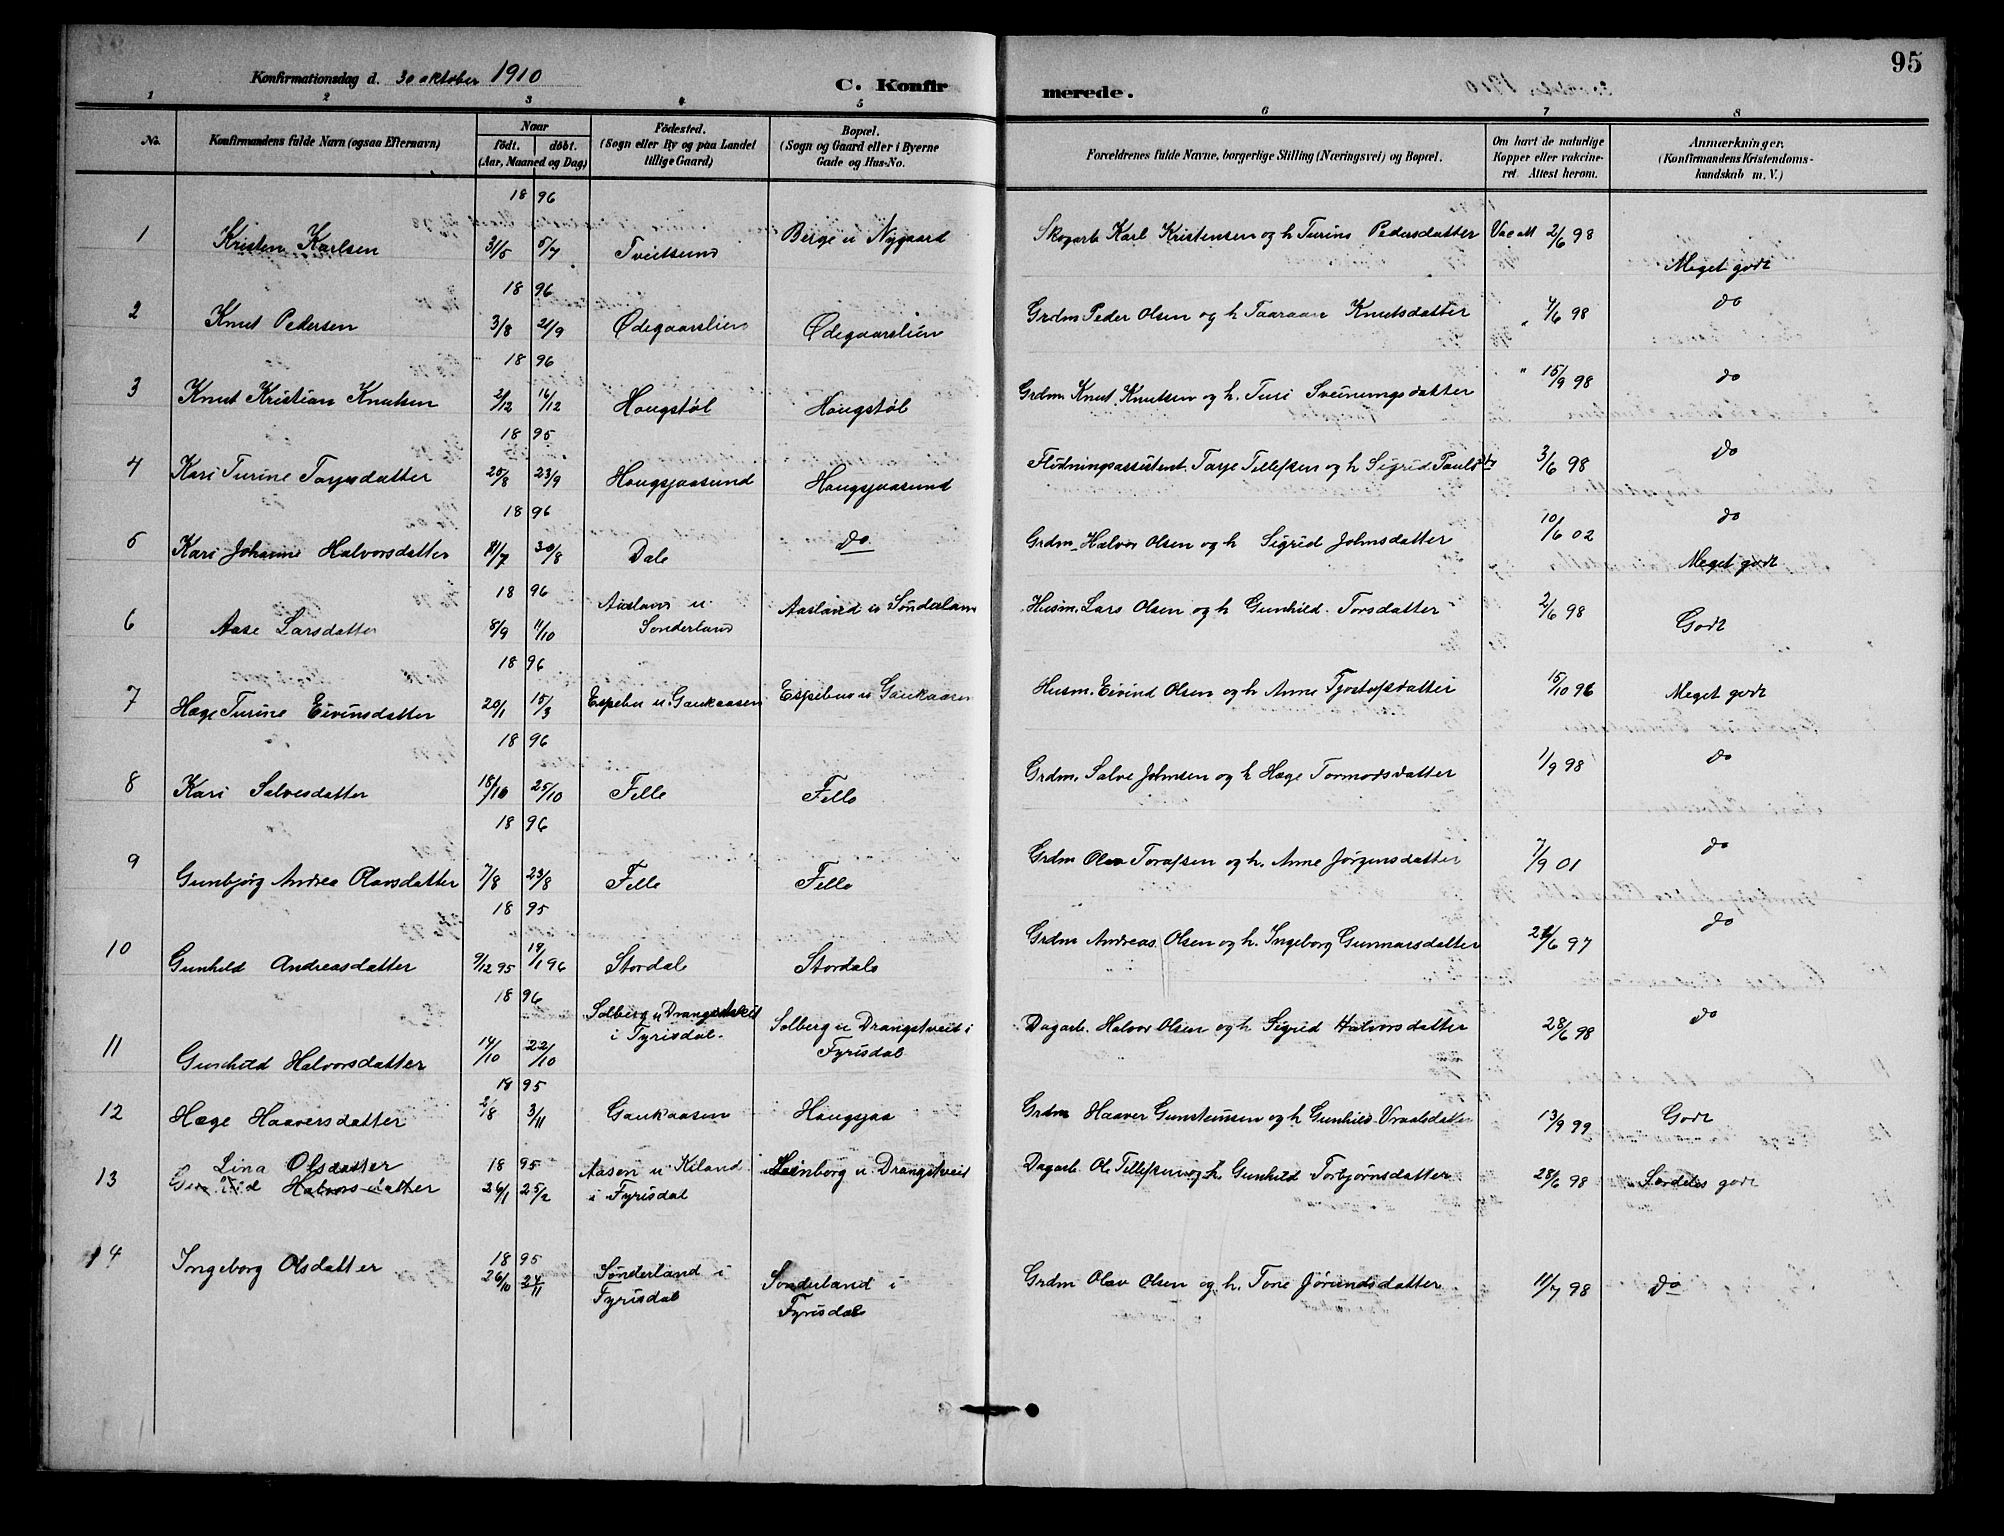 95
Konfirmationsdag d. 30 oktober 1910
C. Konfirmerede.
1 2 3 4 5 6 7 8
No. Konfirmandens fulde Navn (ogsaa Efternavn) Naar født. døbt. (Aar, Maaned og Dag) Fødested. (Sogn eller By og paa Landet tillige Gaard) Bopæl. (Sogn og Gaard eller i Byerne Gade og Hus-No. Forældrenes fulde Navne, borgerlige Stilling (Næringsvei) og Bopæl. Om havt de naturlige Kopper eller vakcineret. Attest herom. Anmærkninger. (Konfirmandens Kristendomskundskab m. V.)
18 96
1 Kristen Karlsen 31/5 5/7 Tveitsund Berge u Nygaard Skogarb Karl Kristensen og h Turine Pedersdatter Vac att 2/6 98 Meget godt
18 96
2 Knut Pedersen 3/8 21/9 Ødegaarslien Ødegaarslien Grdm Peder Olsen og h Taaraan Knutsdatter " 4/6 98 do
18 96
3 Knut Kristian Knutsen 2/12 16/12 Hougstøl Hougstøl Grdm. Knut Knutsen og h. Turi Sveinungsdatter " 15/9 98 do
18 95
4 Kari Turine Tarjesdatter 20/8 23/9 Hougsjaasund Hougsjaasund Flødningsassistent. Tarje Tellefsen og h Sigrid Paulsdtr 3/6 98 do
18 96
5 Kari Johanne Halvorsdatter 8/7 30/8 Dale do Grdm. Halvor Olsen og h Sigrid Johnsdatter 10/6 02 do
Meget godt
18 96
6 Aase Larsdatter 8/9 11/10 Aasland u Sønderland Aasland u Sønderland Husm. Lars Olsen og h Gunhild Torsdatter 2/6 98 Godt
18 96
7 Hæge Turine Eivinsdatter 20/1 15/3 Espebu u. Gaukaasen Espebu u Gaukaasen Husm. Eivind Olsen og h Anne Tjostofsdatter 15/10 96 Meget godt
18 96
8 Kari Salvesdatter 18/10 25/10 Felle Felle Grdm. Salve Johnsen og h Hæge Tormodsdatter 1/9 98 do
18 96
9 Gunbjørg Andrea Olavsdatter 7/8 23/8 Felle Felle Grdm Olav Torafsen og h. Anne Jørgensdatter 7/9 01 do
18 95
10 Gunhild Andreasdatter 9/12 95 19/1 96 Stordale Stordale Grdm Andreas Olsen og h. Ingeborg Gunnarsdatter 24/6 97 do
18 96
11 Gunhild Halvorsdatter 14/10 22/10 Solberg u Drangstveit i Fyrisdal. Solberg u Drangstveit i Fyrisdal Dagarb. Halvor Olsen og h Sigrid Halvorsdatter 28/6 98 do
18 95
12 Hæge Haaversdatter 2/8 3/11 Gaukaasen Hougsjaa Grdm Haaver Gunsteinsen og h Gunhild Vraalsdatter 13/9 99 Godt
Lina Olsdatter 18 95
13 Gunhild Halvorsdatter 26/1 25/2 Aasen u Kiland i Fyrisdal Steinborg u Drangstveit Dagarb. Ole Tellefsen og h. Gunhild Torbjørnsdatter 28/6 98 Særdeles godt
18 95
14 Ingeborg Olsdatter 26/10 24/11 Sønderland i Fyrisdal Sønderland i Fyrisdal Grdm Olav Olsen og h. Tone Jørundsdatter 11/7 98 do